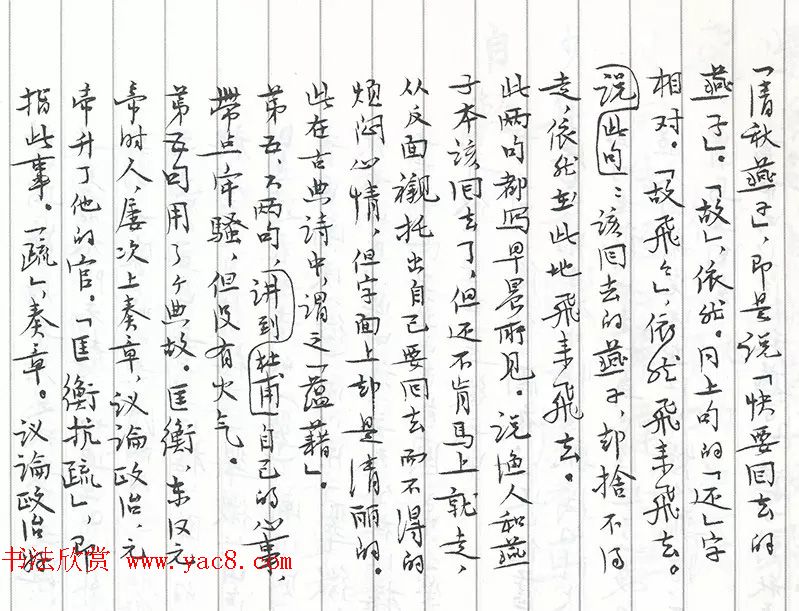 「清秋燕子」，即是说「快要回去的
燕子」。「故」，依然。同上句的「还」字
相对。「故飞飞」，依然飞来飞去。
说此句：该回去的燕子，却捨不得
走，依然在此地飞来飞去。
此两句都写早晨所见。说渔人和燕
子本该回去了，但还不肯马上就走，
从反面衬托出自己要回去而不得的
烦闷心情，但字面上却是清丽的。
此在古典诗中，谓之「蕴藉」。
第五、六两句，讲到杜甫自己的心事，
带点牢骚，但没有火气。
第五句用了个典故。匡衡，东汉元
帝时人，屡次上奏章，议论政治，元
帝升了他的官。「匡衡抗疏」，即
指此事。「疏」，奏章。议论政治的
书法欣赏 www.yac8.com